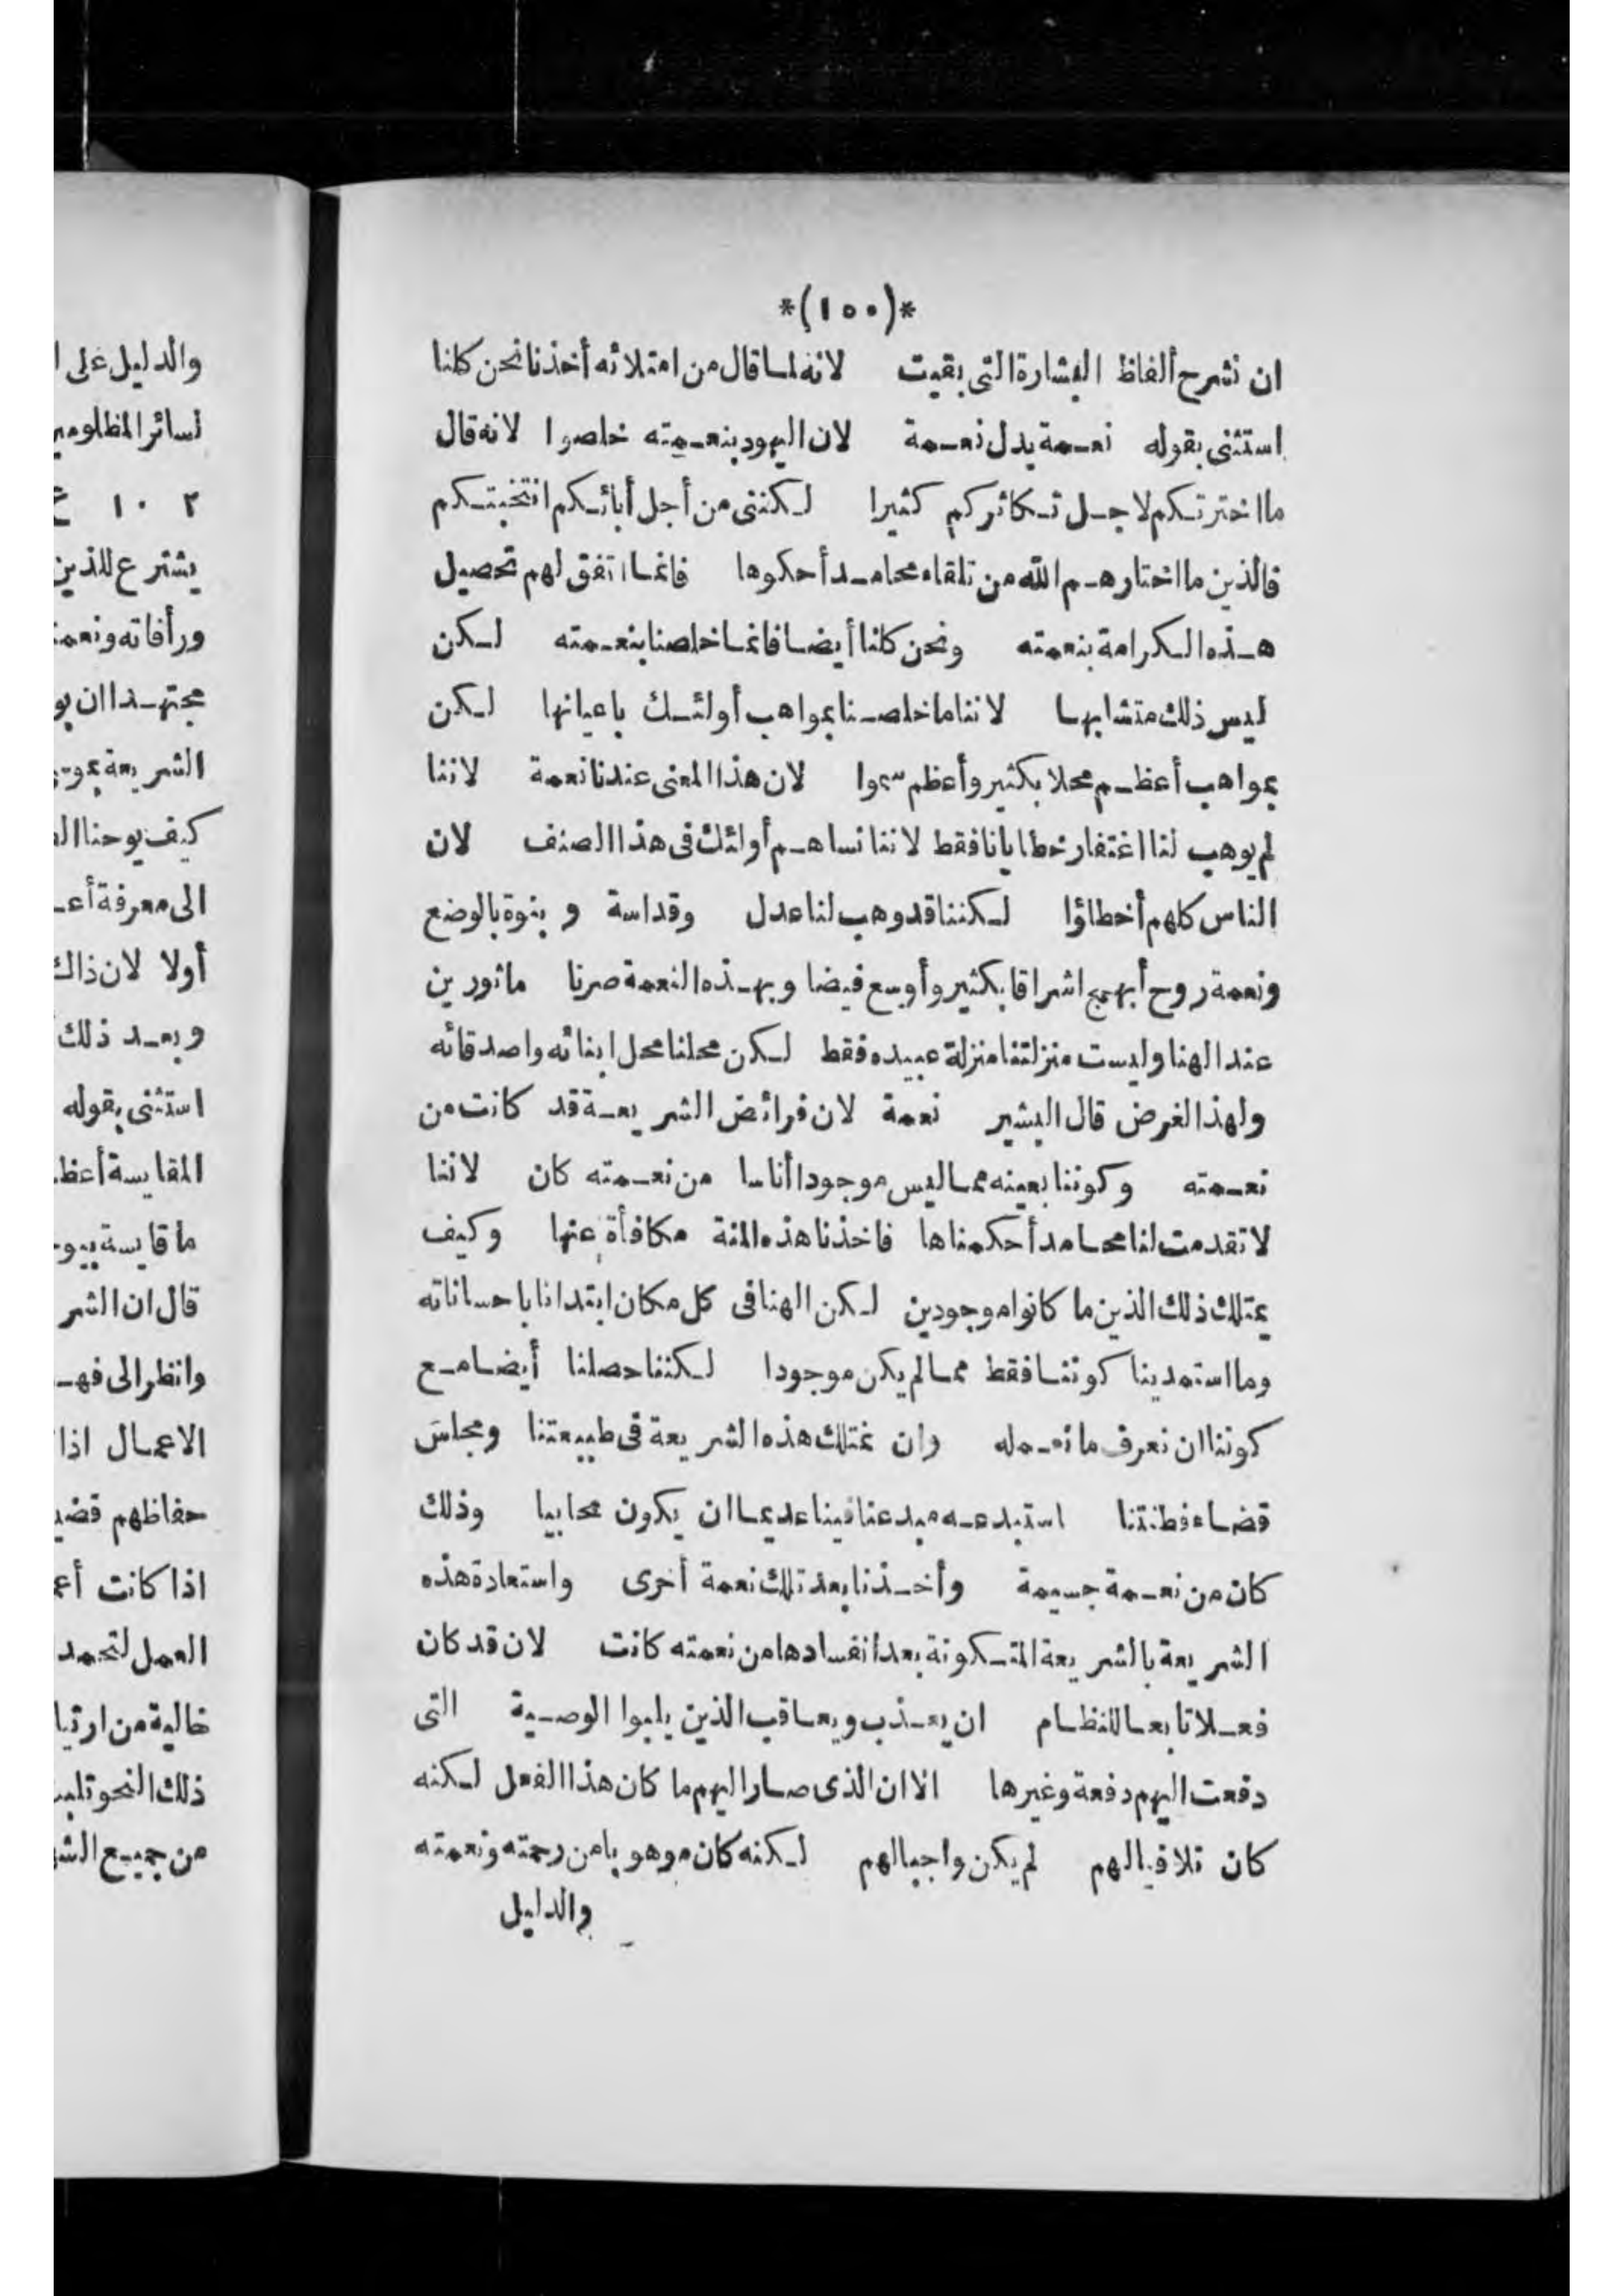 *(١٥٥)*
ان نشرح ألفاظ البشارة التى بقيت لانه لما قال من امتلائه أخذنا نحن كلنا
استثنى بقوله نعمة بدل نعمة لان اليهود بنعمته خلصوا لانه قال
ما اخترتكم لاجل تكاثركم كثيرا لكننى من أجل أبائكم انتخبتكم
فالذين ما اختارهم الله من تلقاء محامد أحكوها فانما اتفق لهم تحصيل
هذه الكرامة بنعمته ونحن كلنا أيضا فانما خلصنا بنعمته لكن
ليس ذلك متشابها لاننا ما خلصنا بمواهب أولئك باعيانها لكن
بمواهب أعظم محلا بكثير وأعظم سموا لان هذا المعنى عندنا نعمة لاننا
لم يوهب لنا اغتفار خطايانا فقط لاننا نساهم أولئك فى هذا الصنف لان
الناس كلهم أخطاؤا لكننا قد وهب لنا عدل وقداسة و بنوة بالوضع
ونعمة روح أبهج اشراقا بكثير وأوسع فيضا وبهذه النعمة صرنا ماثورين
عند الهنا وليست منزلتنا منزلة عبيده فقط لكن محلنا محل ابنائه واصدقائه
ولهذا الغرض قال البشير نعمة لان فرائض الشريعة قد كانت من
نعمته وكوننا بعينه مما ليس موجودا أناسا من نعمته كان لاننا
لا تقدمت لنا محامد أحكمناها فاخذنا هذه المنة مكافأة عنها وكيف
يمتلك ذلك الذين ما كانوا موجودين لكن الهنا فى كل مكان ابتدانا باحساناته
وما استمدينا كوننا فقط مما لم يكن موجودا لكننا حصلنا أيضا مع
كوننا ان نعرف ما نعمله وان نمتلك هذه الشريعة فى طبيعتنا ومجلس
قضاء فطنتنا استبدعه مبدعنا فينا عديما ان يكون محابيا وذلك
كان من نعمة جسيمة وأخذنا بعد تلك نعمة أخرى واستعادة هذه
الشريعة بالشريعة المتكونة بعد انفسادها من نعمته كانت لان قد كان
فعلا تابعا للنظام ان يعذب ويعاقب الذين يلبوا الوصية التى
دفعت اليهم دفعة وغيرها الا ان الذى صار اليهم ما كان هذا الفعل لكنه
كان تلافيا لهم لم يكن واجبا لهم لكنه كان موهوبا من رحمته ونعمته
والدليل
والدليل على
لسائر
٢ ١٠
يشترع للذين
ورأفاته
مجتهدا ان
الشريعة
كيف يوحنا
الى معرفة
أولا لان ذاك
وبعد ذلك
استثنى بقوله
المقايسة
ما قايسة
قال ان
وانظر الى
الاعمال اذا
حفاظهم
اذا كانت
العمل
خالية من
ذلك النحو
من جميع